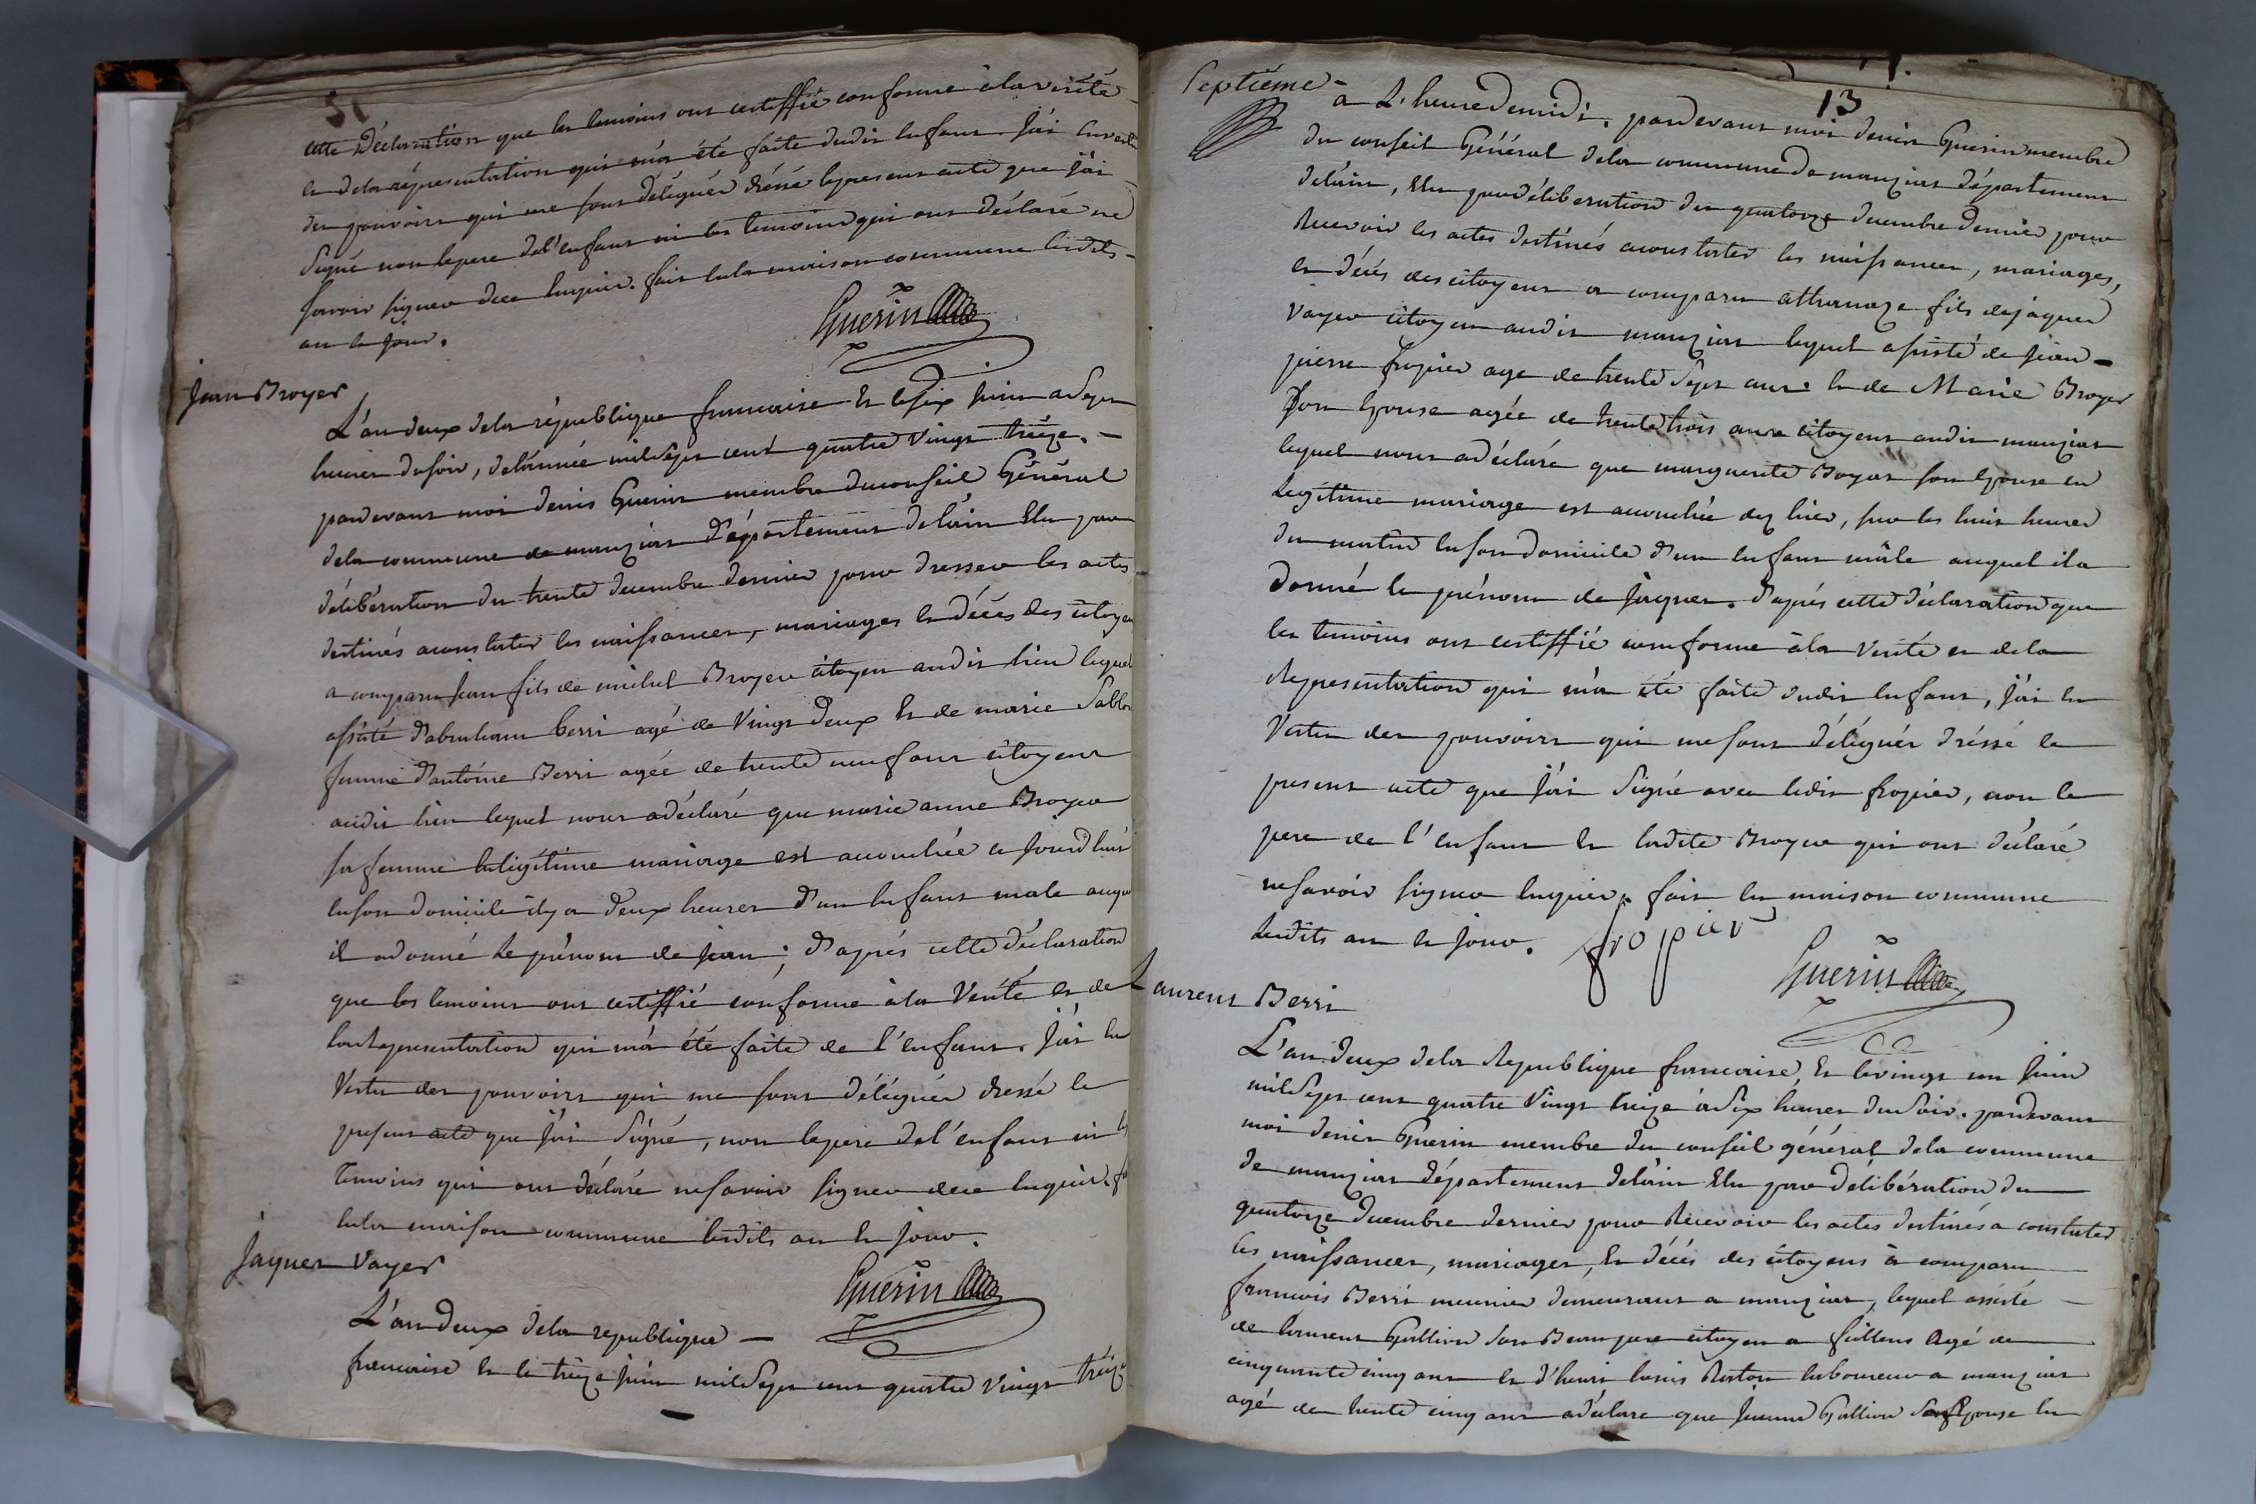 cette Déclaration que les temoins ont certiffié conforme à la vérité
et de la répresentation qui m'a été faite dudit enfant. J'ai en vertu
des pouvoirs qui me sont délégués dréssé le present acte que j'ai
signé non le pere de l'enfant ni les temoins qui ont déclaré ne
savoir signer de ce enquis. fait en la maison commune lesdits
an et jour.
Guerin
Jean Broyer
L'an deux de la république francaise Et le six juin a sept
heures du soir, de l'année mil sept cent quatre vingt treize.
pardevant moi denis Guerin membre du conseil Général
de la commune de manziat département de l'ain Elu par
délibération du trente decembre dernier pour dresser les actes
destinés a constater les naissances, mariages et décès des citoyens
a comparu jean fils de michel Broyer citoyen audit lieu lequel
assisté d'abraham berri agé de vingt deux Et de marie Sablon
femme d'antoine Berri agée de trente neuf ans citoyens
audit lieu lequel nous a déclaré que marie anne Broyer
sa femme en légitime mariage est accouchée ce jourd'hui
en son domicile il y a deux heures d'un enfant male auquel
il a donné le prénom de jean; d'après cette déclaration
que les temoins ont certiffié conforme à la vérité et de
la représentation qui m'a été faite de l'enfant. J'ai en
vertu des pouvoirs qui me sont délégués dressé le
present acte que j'ai signé, non le pere de l'enfant ni les
temoins qui ont déclaré ne savoir signer de ce enquis. fa
en la maison commune lesdits an et jour.
Guerin
Jaques Vayer
L'an deux de la republique
francaise Et le treize juin mil sept cent quatre vingt treize
13
Septiéme
a L'heure de midi. pardevant moi denis Guerin membre
du conseil Général de la commune de manziat département
de l'ain, Elu par délibération du quatorze decembre dernier pour
Recevoir les actes destinés a constater les naissances, mariages,
et décès des citoyens a comparu athanaze fils de jaques
Vayer citoyen audit manziat lequel assisté de jean
pierre fropier age de trente sept ans. Et de Marie Broyer
son Epouse agée de trente trois ans citoyens audit manziat
lequel nous a déclaré que marguerite Boyat son Epouse en
legitime mariage est accouchée dez hier, sur les huit heures
du matin en son domicile d'un enfant mâle auquel il a
donné le prénom de jaques. d'aprés cette déclaration que
les temoins ont certiffié conforme à la vérité et de la
Répresentation qui m'a été faite dudit enfant, j'ai en
Vertu des pouvoirs qui me sont délégués dréssé le
present acte que j'ai signé avec ledit fropier, non le
pere de l'enfant Et ladite Broyer qui ont déclaré
ne savoir signer enquis. fait en maison commune
lesdits an et jour.
fropier
Guerin
Laurent Berri
L'an deux de la Republique francaise, Et le vingt un juin
mil sept cent quatre vingt treize à six heures du soir. pardevant
moi denis Guerin membre du conseil général de la commune
de manziat département de l'ain Elu par délibération du
quatorze decembre dernier pour Recevoir les actes destinés a constater
les naissances, mariages, Et décés des citoyens a comparu
francois Berri meunier demeurant a manziat, lequel assisté
de laurent Gallion son Beaupere citoyen a feillens Agé de
cinquante cinq ans et d'henri louis laboureur a manziat
agé de trente cinq ans a déclare que jeanne Gallion son Epouse en